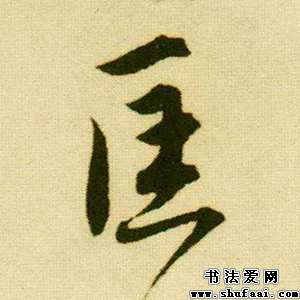 匡
书法爱网
www.shufaai.com